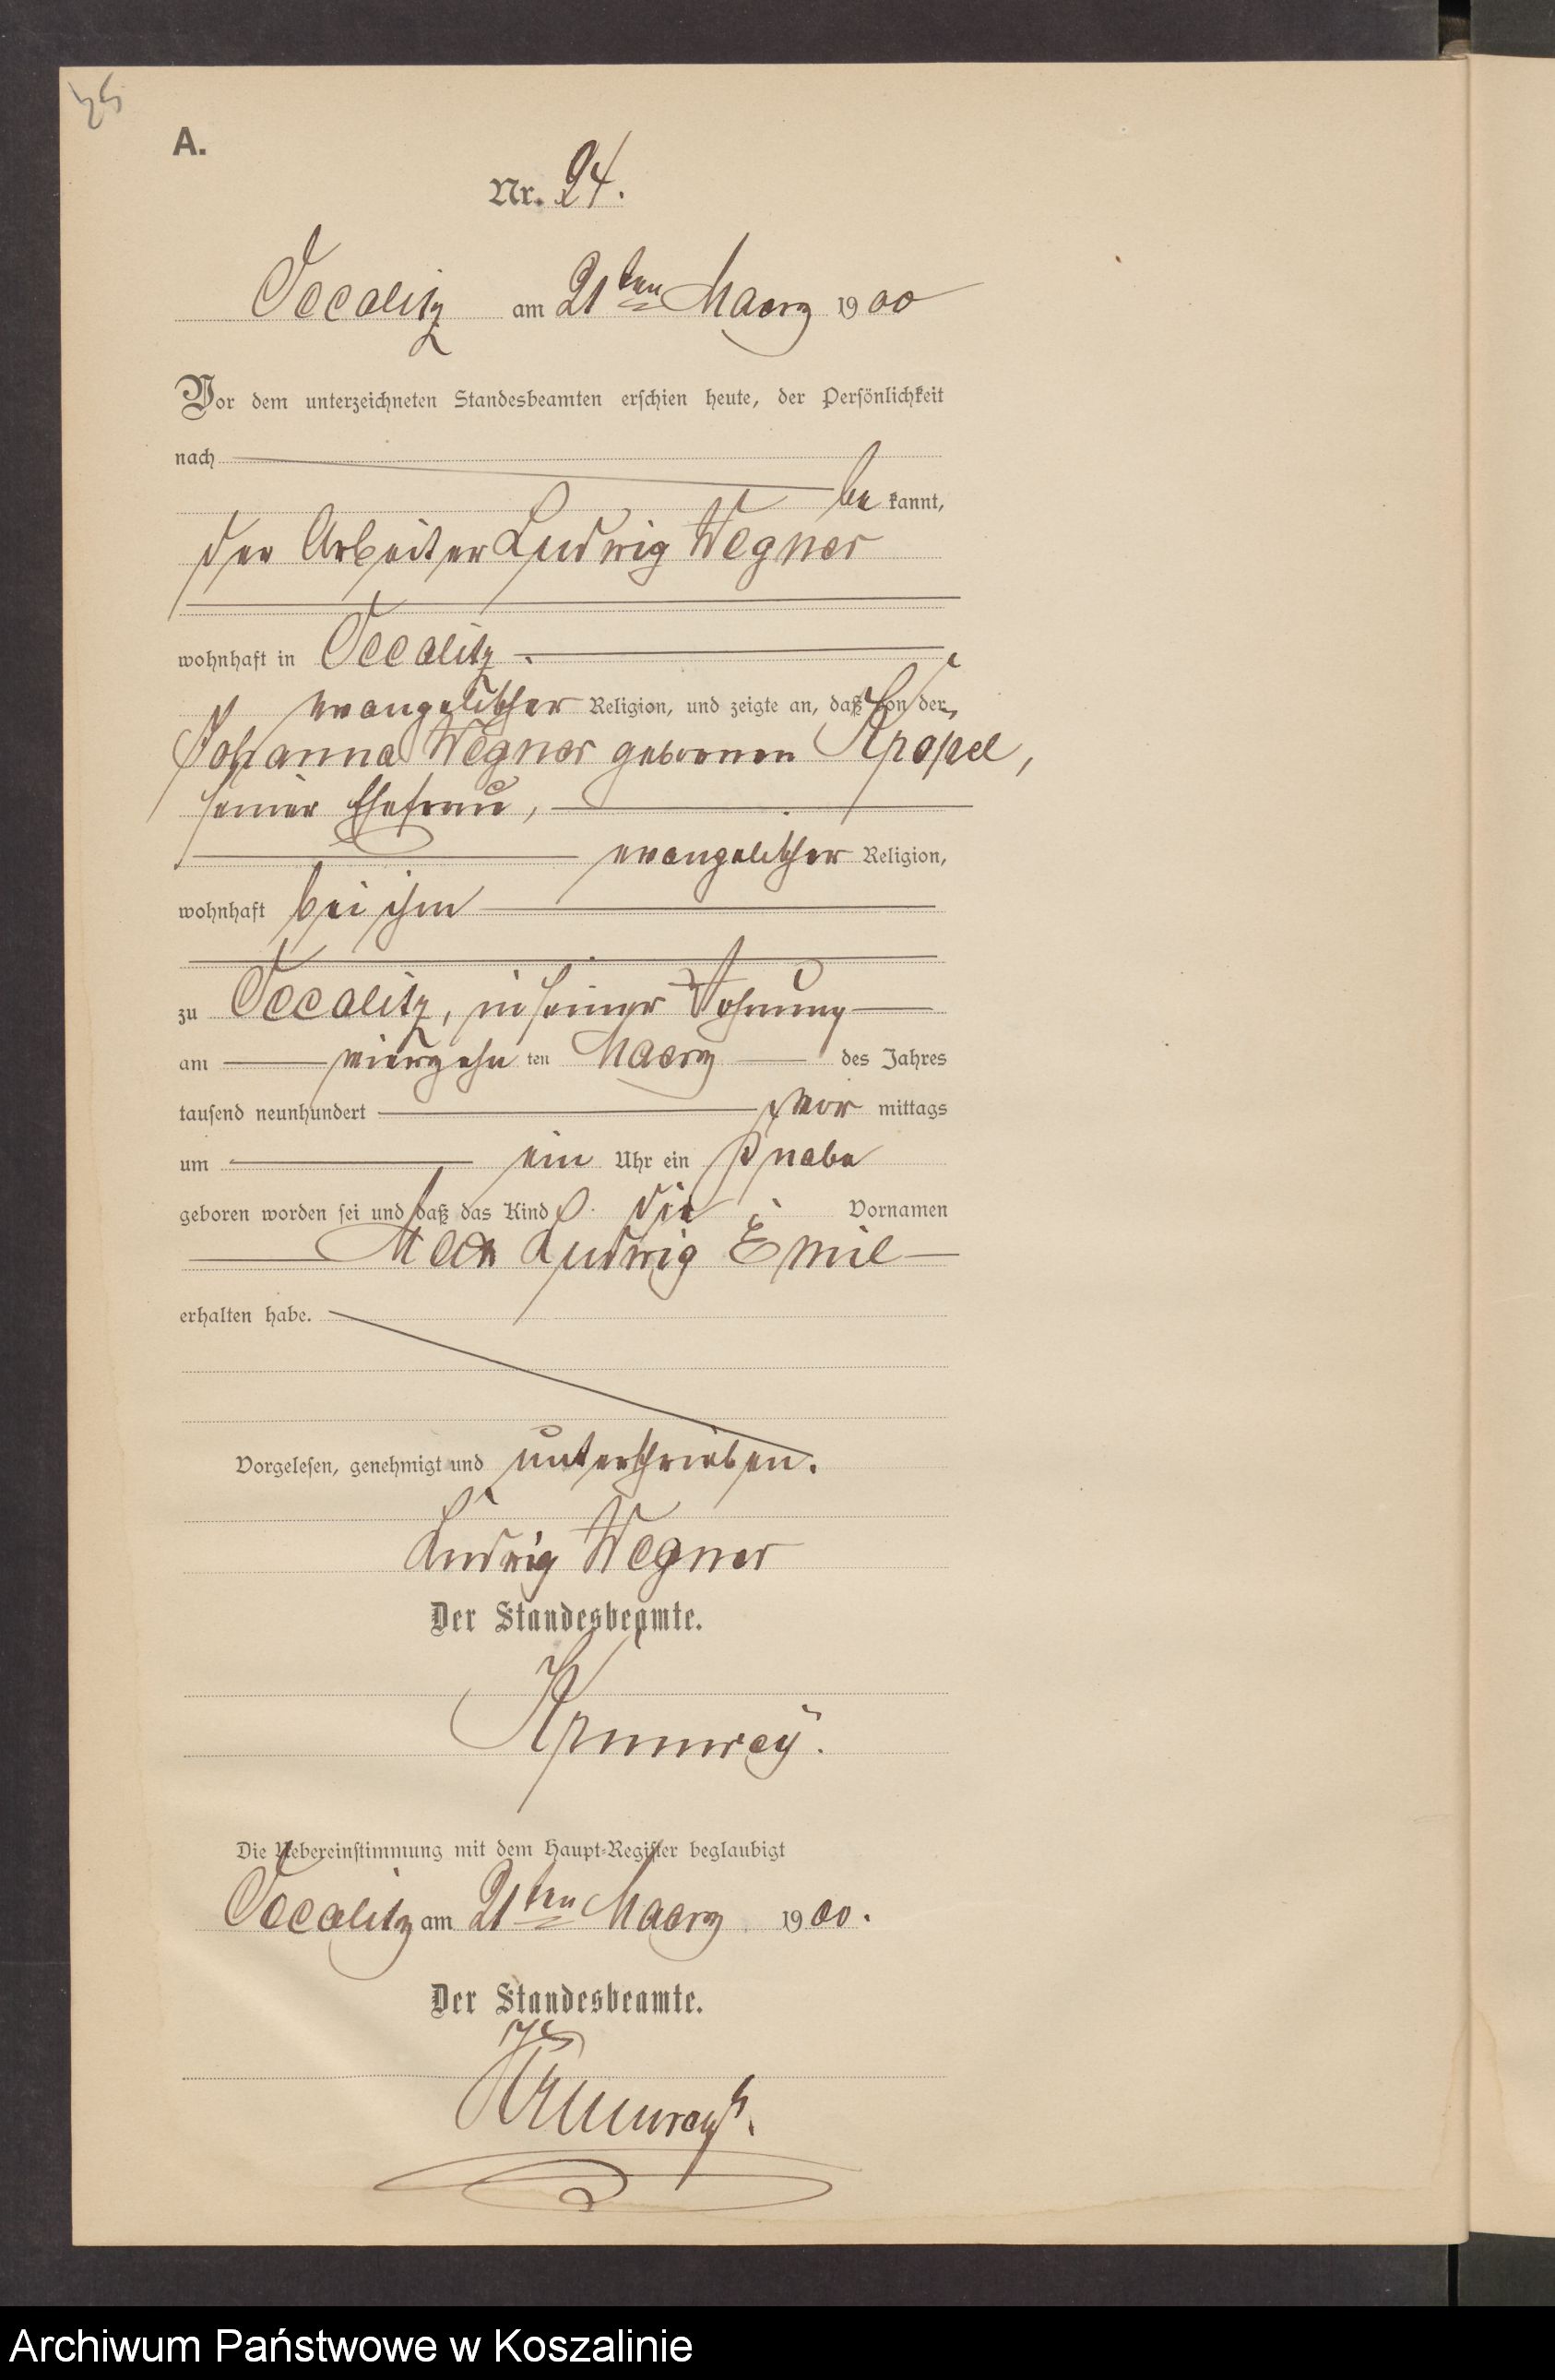 25
A.
Nr. 24.
Occalitz am 21ten Maerz 1900
Vor dem unterzeichneten Standesbeamten erschien heute, der Persönlichkeit
nach
be kannt,
der Arbeiter Ludwig Wegner
wohnhaft in Occalitz.
evangelischer Religion, und zeigte an, daß von der
Johanna Wegner geborenen
seiner Ehefrau,
evangelischer Religion,
wohnhaft bei ihm
zu Occalitz, in seiner Wohnung
am vierzehn ten Maerz des Jahres
tausend neunhundert Vor mittags
um ein Uhr ein Knabe
geboren worden sei und daß das Kind die Vornamen
Max Ludwig Emil
erhalten habe.
Vorgelesen, genehmigt und unterschrieben.
Ludwig Wegner
Der Standesbeamte.
Die Uebereinstimmung mit dem Haupt-Register beglaubigt
Occalitz am 21ten Maerz 1900.
Der Standesbeamte.
Archiwum Państwowe w Koszalinie